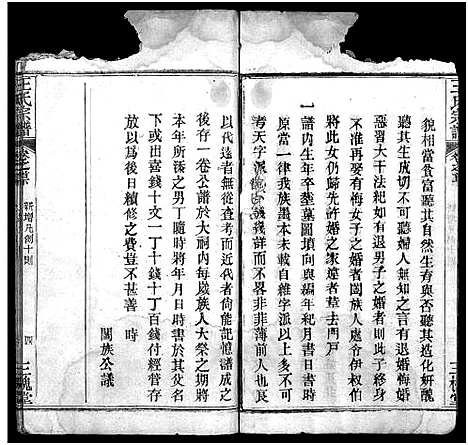 王氏宗譜
貌相當貧富聽其自然生育與否聽其造化妍醜
聽其生成切不可聽婦人無知之言或退婚悔婚
惡習大干法紀如有退男子之婚者則此子終身
不准再娶有悔女子之婚者闔族人光令伊叔伯
將此女仍歸先許婚之家違者
去門戶
一譜內生年卒塟墓圖墳向與編年紀月書日書時
原當一律我族
譜本未自雍字派以上多不可
考天字派以
殘詳而不畧非菲薄前人也良
以代遠者無從查考而近代者尚能記憶譜成之
後存一卷公譜於大祠內每歲族人大祭之期將
本年所添之男丁隨時將年月日時書於其父名
下或出喜錢十文一丁十錢十丁百錢付經管存
放以為後日續修之費豈不甚善
時
闔族公議
王氏宗譜
卷之
新增凡例十則
四
三槐堂
三槐堂